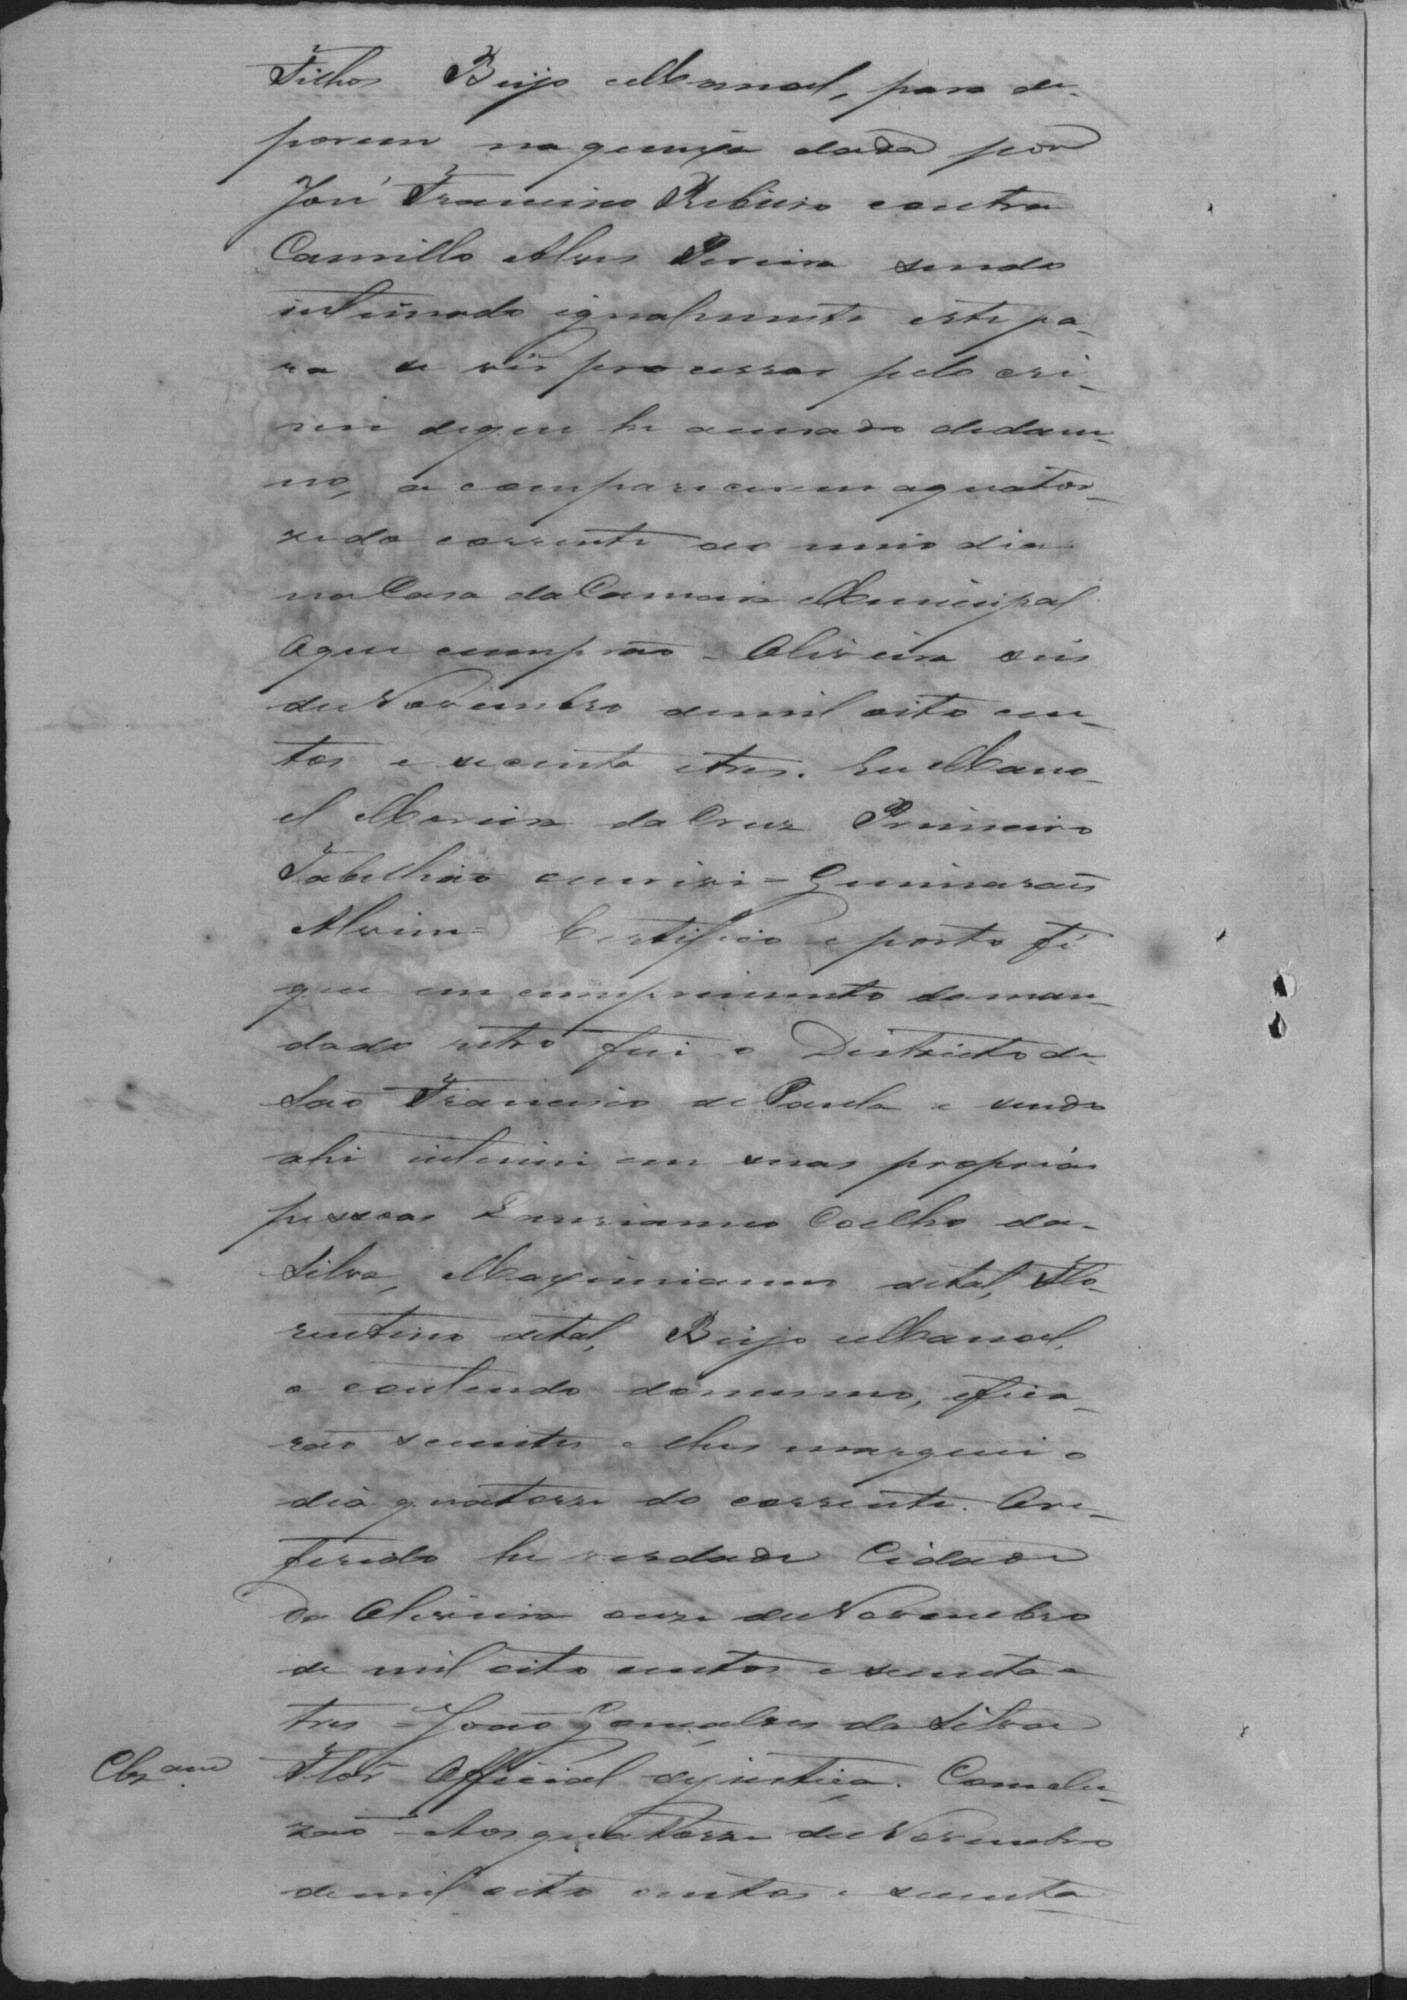 Filhos Beijo Manoel, para de-
porem na queixa dada por
José Francisco Ribeiro contra
Camillo Alves Pereira sendo
intimado igualmente este pa-
ra se vêr processar pelo cri-
me de que he accusado de dam-
no, a comparecerem a quator-
ze do corrente ao meio dia
na Casa da Camara Municipal
O que cumprão - Oliveira seis
de Novembro de mil oito cen-
tos e secenta e tres. Eu Mano-
el Moreira da Cruz Primeiro
Tabelhião escrivi = Guimaraes
Alvim = Certifico e porto fé
que em cumprimento do man-
dado retro fui o Districto de
São Francisco de Paula e sendo
ahi intimei em suas proprias
pessoas Laurianno Coelho da
Silva, Maximianno de tal, Flo-
rentino de tal, Beijo Manoel,
o contendo do mesmo, e fica-
rão scientes e lhes marquei o
dia quatorze do corrente. O re-
ferido he verdade Cidade
da Oliveira onze de Novembro
de mil oito centos e secenta e
tres = João Gonçalves da Silva
Clzam Flôr Official de justiça. Conclu-
zão - Aos quatorze de Novembro
de mil oito centos e secenta